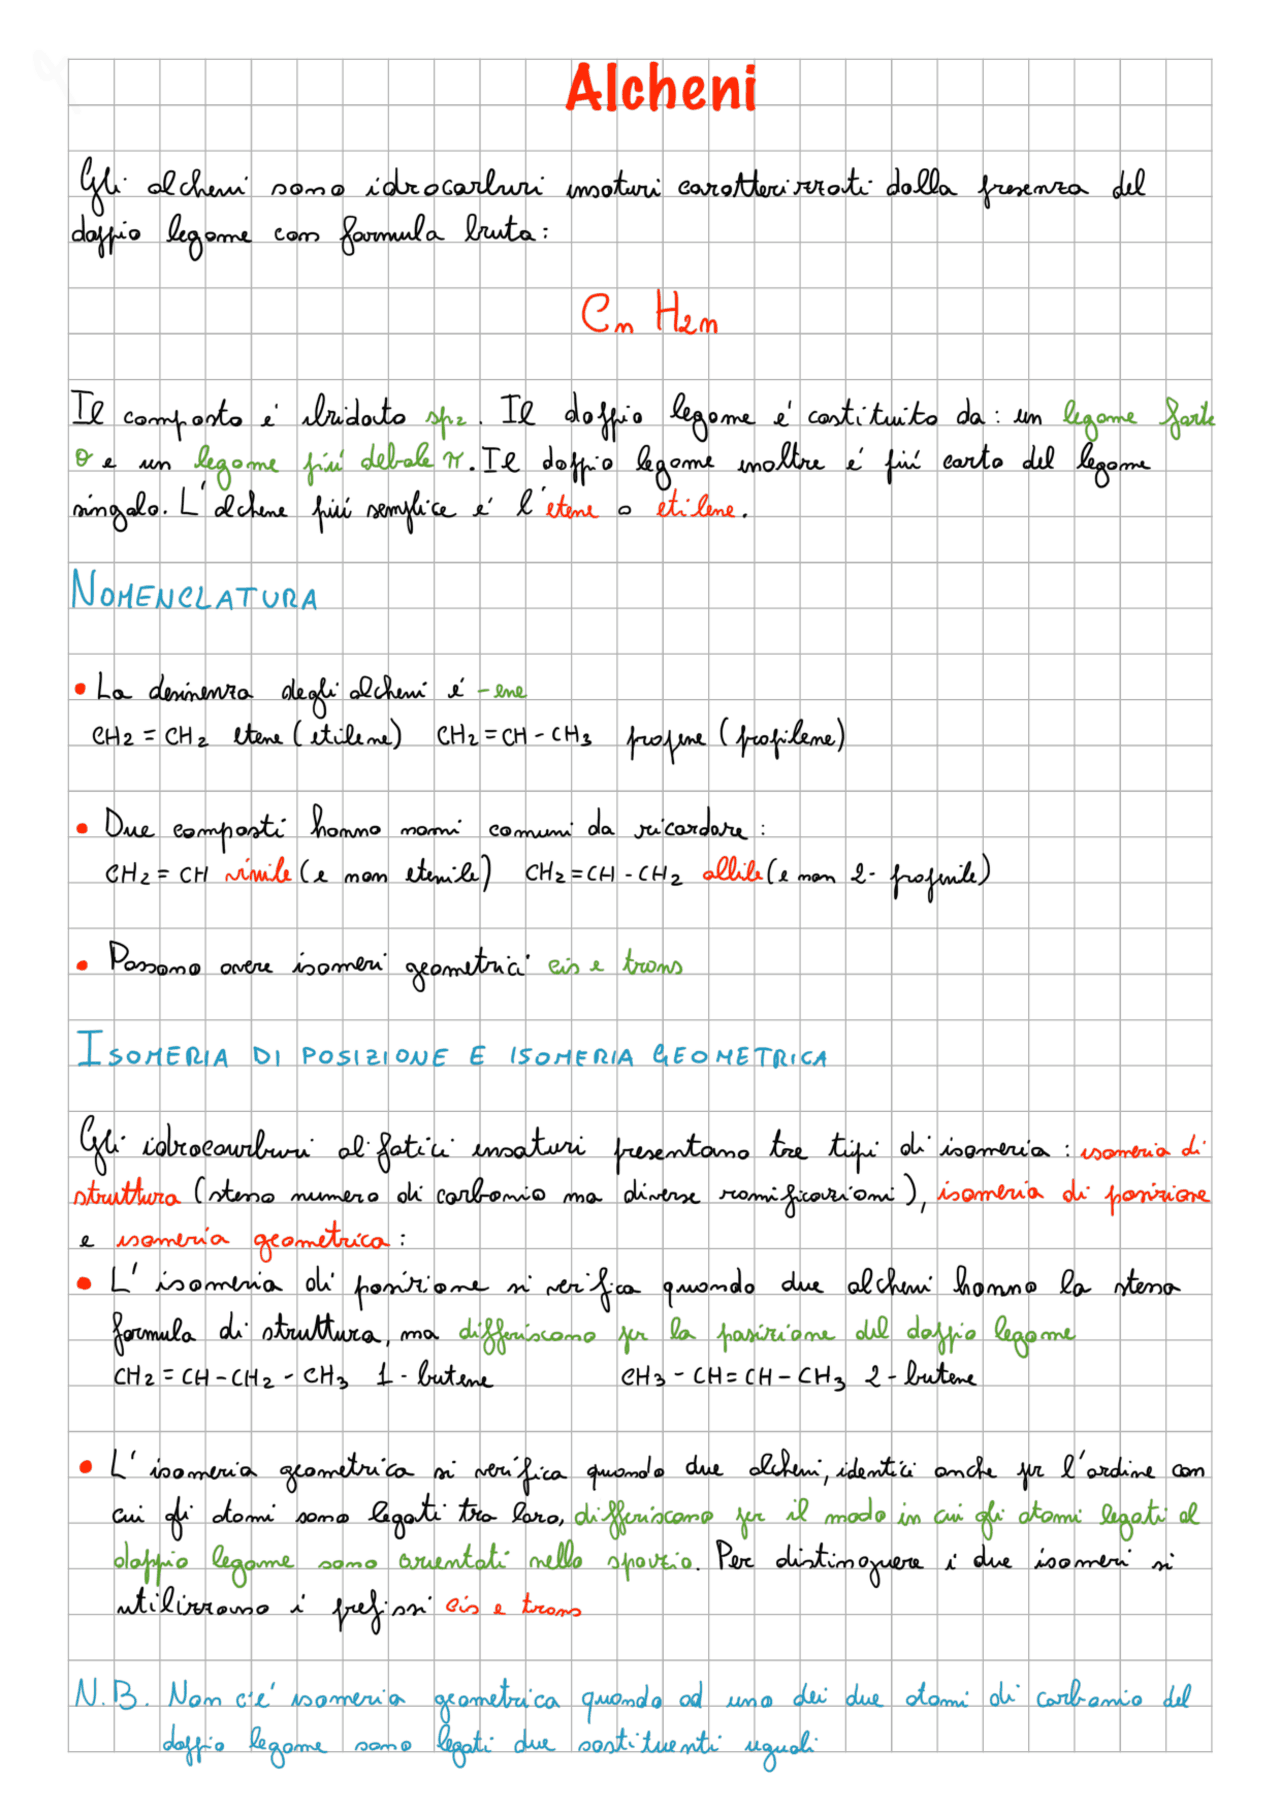 Alcheni
Gli alcheni sono idrocarburi insaturi caratterizzati dalla presenza del
doppio legame con formula bruta:
Cn H2n
Il composto é ibridato sp2. Il doppio legame é costituito da: un legame forte
σ e un legame piú debole π. Il doppio legame inoltre é piú corto del legame
singolo. L'alchene piú semplice é l'etene o etilene.
NOMENCLATURA
• La desinenza degli alcheni é -ene
CH2 = CH2 etene (etilene) CH2 = CH - CH3 propene (propilene)
• Due composti hanno nomi comuni da ricordare:
CH2 = CH vinile (e non etenile) CH2 = CH - CH2 allile (e non 2- propenile)
• Possono avere isomeri geometrici cis e trans
ISOMERIA DI POSIZIONE E ISOMERIA GEOMETRICA
Gli idrocarburi alifatici insaturi presentano tre tipi di isomeria: isomeria di
struttura (stesso numero di carbonio ma diverse ramificazioni), isomeria di posizione
e isomeria geometrica:
• L'isomeria di posizione si verifica quando due alcheni hanno la stessa
formula di struttura, ma differiscono per la posizione del doppio legame
CH2 = CH - CH2 - CH3 1 - butene CH3 - CH = CH - CH3 2 - butene
• L'isomeria geometrica si verifica quando due alcheni, identici anche per l'ordine con
cui gli atomi sono legati tra loro, differiscono per il modo in cui gli atomi legati al
doppio legame sono orientati nello spazio. Per distinguere i due isomeri si
utilizzano i prefissi cis e trans
N.B. Non c'é isomeria geometrica quando ad uno dei due atomi di carbonio del
doppio legame sono legati due sostituenti uguali